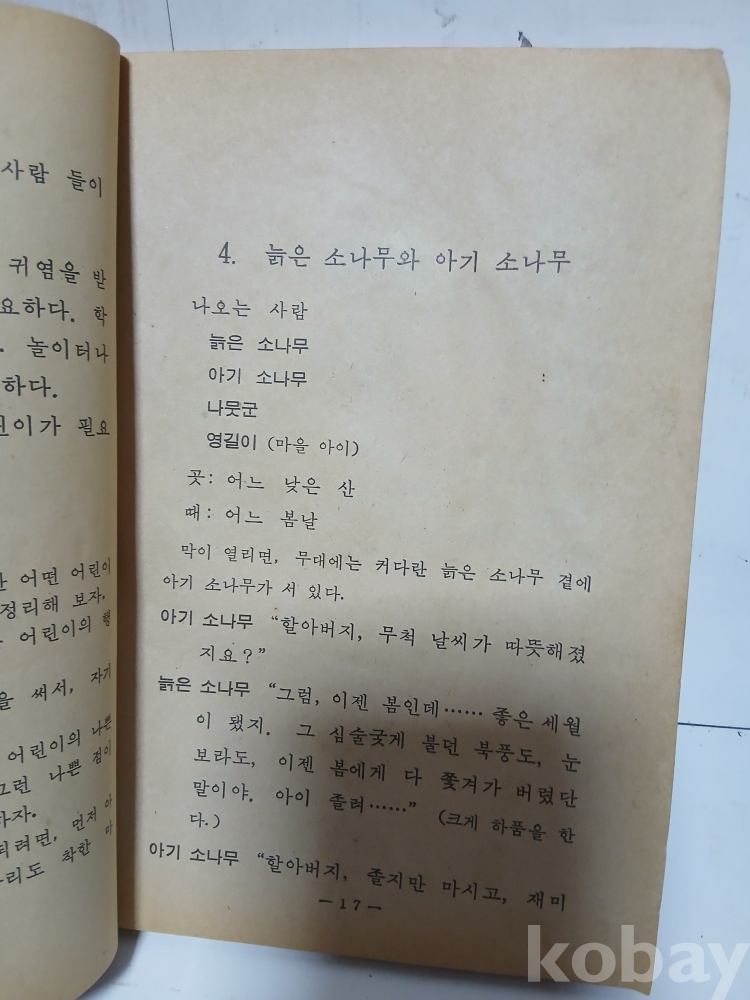 사람 들이
귀염을 받
요하다. 학
놀이터나
하다.
이가 필요
어떤 어린이
정리해 보자.
어린이의 행
을 써서, 자기
어린이의 나쁜
그런 나쁜 점이
하자.
되려면, 먼저 아
우리도 착한 다
4. 늙은 소나무와 아기 소나무
나오는 사람
늙은 소나무
아기 소나무
나뭇군
영길이 (마을 아이)
곳: 어느 낮은 산
때: 어느 봄날
막이 열리면, 무대에는 커다란 늙은 소나무 곁에
아기 소나무가 서 있다.
아기 소나무 “할아버지, 무척 날씨가 따뜻해졌
지요?”
늙은 소나무 “그럼, 이젠 봄인데…… 좋은 세월
이 됐지. 그 심술궂게 불던 북풍도, 눈
보라도, 이젠 봄에게 다 쫓겨가 버렸단
말이야. 아이 졸려……” (크게 하품을 한
다.)
아기 소나무 “할아버지, 졸지만 마시고, 재미
—17—
kobay